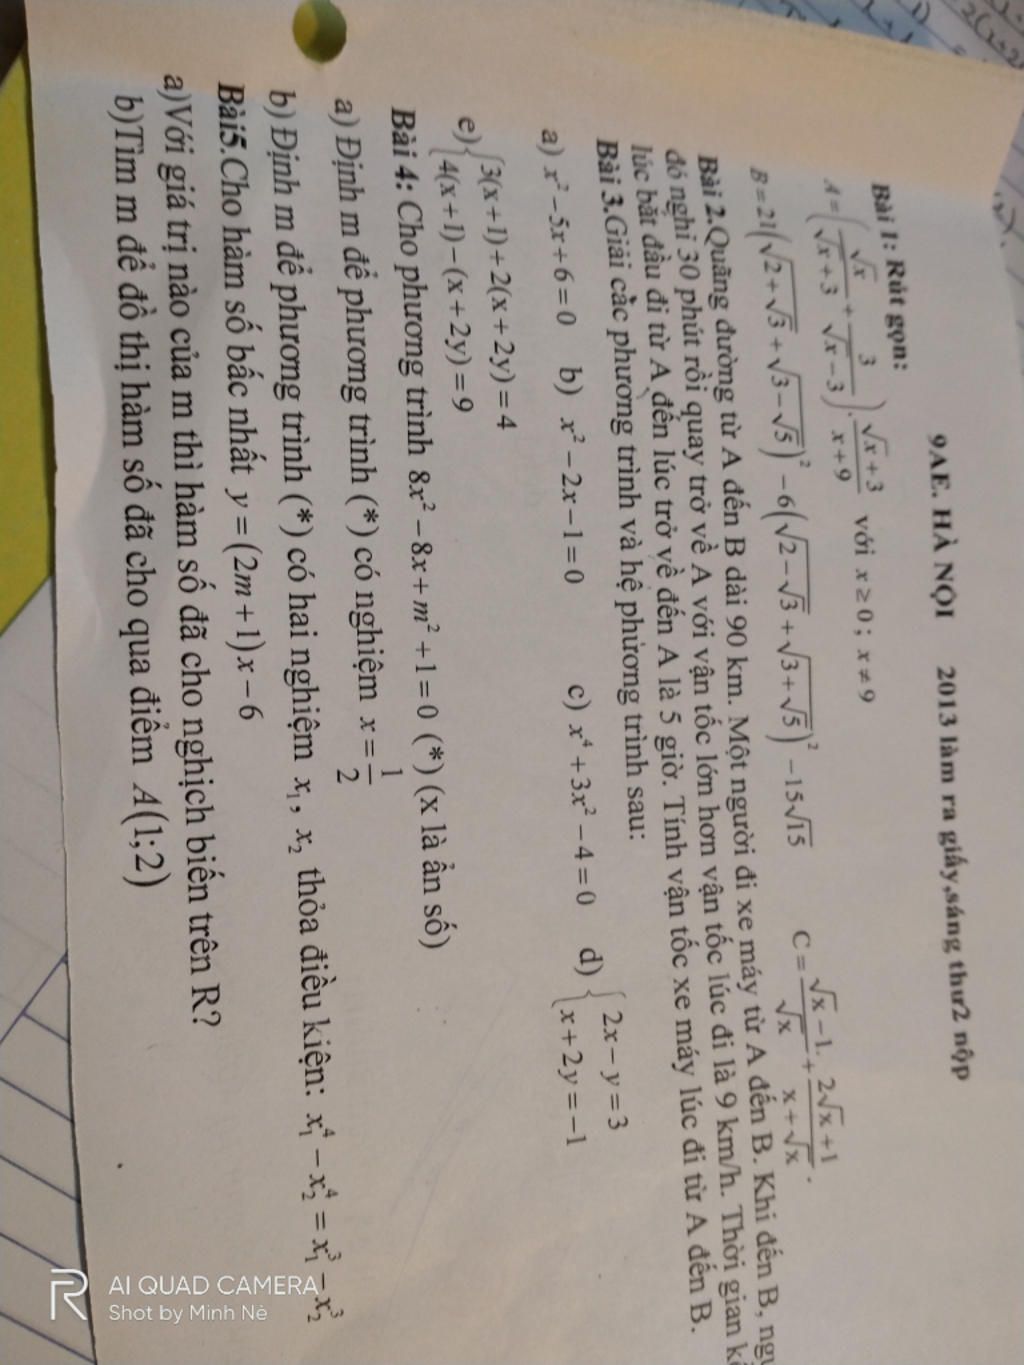 9AE. HÀ NỘI 2013 làm ra giấy,sáng thư2 nộp
Bài 1: Rút gọn:
A = (√x/(√x + 3) + 3/(√x − 3)) . (√x + 3)/(x + 9) với x ≥ 0 ; x ≠ 9
B = 21(√(2 + √3) + √(3 − √5))² − 6(√(2 − √3) + √(3 + √5))² − 15√15 C = (√x − 1)/√x + (2√x + 1)/(x + √x) .
Bài 2.Quãng đường từ A đến B dài 90 km. Một người đi xe máy từ A đến B. Khi đến B,
đó nghỉ 30 phút rồi quay trở về A với vận tốc lớn hơn vận tốc lúc đi là 9 km/h. Thời gian
lúc bắt đầu đi từ A đến lúc trở về đến A là 5 giờ. Tính vận tốc xe máy lúc đi từ A đến B.
Bài 3.Giải các phương trình và hệ phương trình sau:
a) x² − 5x + 6 = 0 b) x² − 2x − 1 = 0 c) x⁴ + 3x² − 4 = 0 d) { 2x − y = 3
x + 2y = −1
e) { 3(x + 1) + 2(x + 2y) = 4
4(x + 1) − (x + 2y) = 9
Bài 4: Cho phương trình 8x² − 8x + m² + 1 = 0 (*) (x là ẩn số)
a) Định m để phương trình (*) có nghiệm x = 1/2
b) Định m để phương trình (*) có hai nghiệm x₁, x₂ thỏa điều kiện: x₁⁴ − x₂⁴ = x₁³ − x₂³
Bài5.Cho hàm số bấc nhất y = (2m + 1)x − 6
a)Với giá trị nào của m thì hàm số đã cho nghịch biến trên R?
b)Tìm m để đồ thị hàm số đã cho qua điểm A(1;2)
AI QUAD CAMERA
Shot by Minh Nè